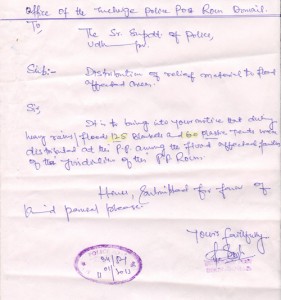 Office of the Incharge Police Post Ram
To
The Sr. Supdtt. of Police,
Udh
Sub:- Distribution of relief material to flood
affected area.
Sir,
It is to bring into your notice that during
heavy rains/floods 125 Blankets and 60 Plastic Tents were
distributed at the P.P. among the flood affected families
of the Jurisdiction of this P.P. Ram
Hence, Submitted for favour of
kind perusal please
Yours faithfully